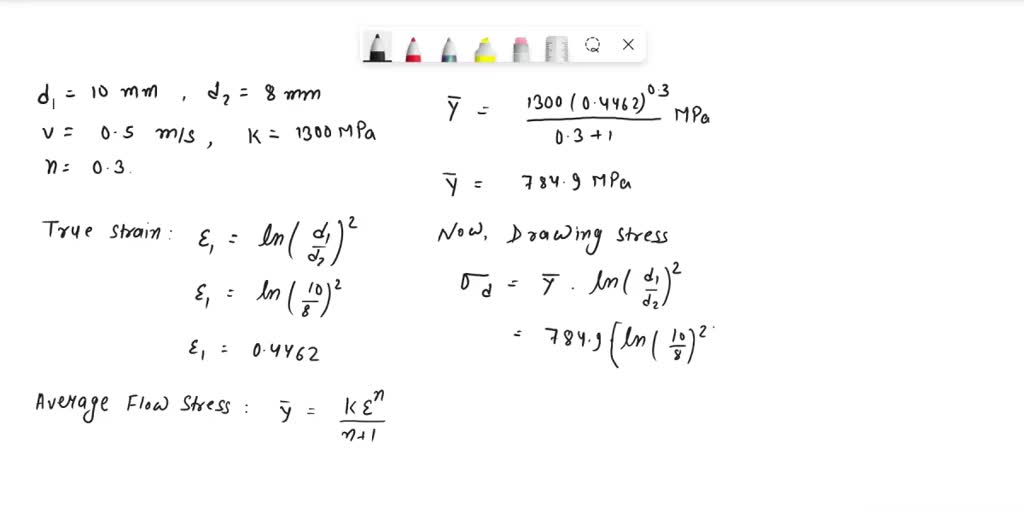 d₁ = 10 mm , d₂ = 8 mm
v = 0.5 m/s , K = 1300 MPa
n = 0.3.
True Strain: ε₁ = ln(d₁/d₂)²
ε₁ = ln(10/8)²
ε₁ = 0.4462
Average Flow Stress : ȳ = kεⁿ/n+1
Ȳ = 1300(0.4462)^0.3/0.3+1 MPa
Ȳ = 784.9 MPa
Now, Drawing Stress
σ_d = Ȳ . ln(d₁/d₂)²
= 784.9 [ln(10/8)²